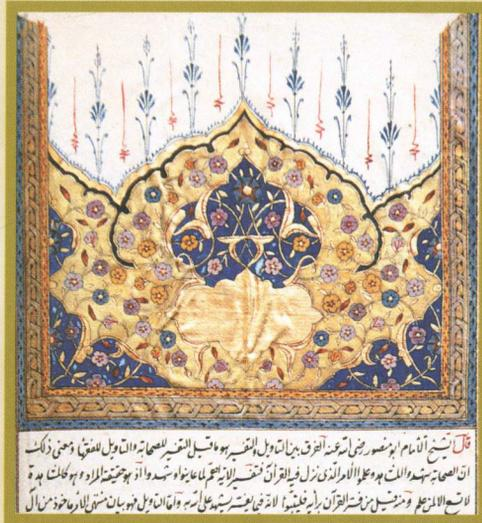 قال الشيخ الامام ابو منصور رضي الله عنه الفرق بين التاويل والتفسير هو ما قيل التفسير للصحابة والتاويل للفقهاء ومعنى ذلك
ان الصحابة شهدوا المشاهد وعلموا الامر الذى نزل فيه القرآن فتفسير الآية اهم لما عاينوا وشهدوا اذ هو حقيقة المراد وهو كالمشاهدة
لا تسمع الا من علم ومنه قيل من فسر القرآن برأيه فليتبوأ لانه فيما يفسر يشهد على الله به واما التاويل فهو بيان منتهى الامر مأخوذ من آل